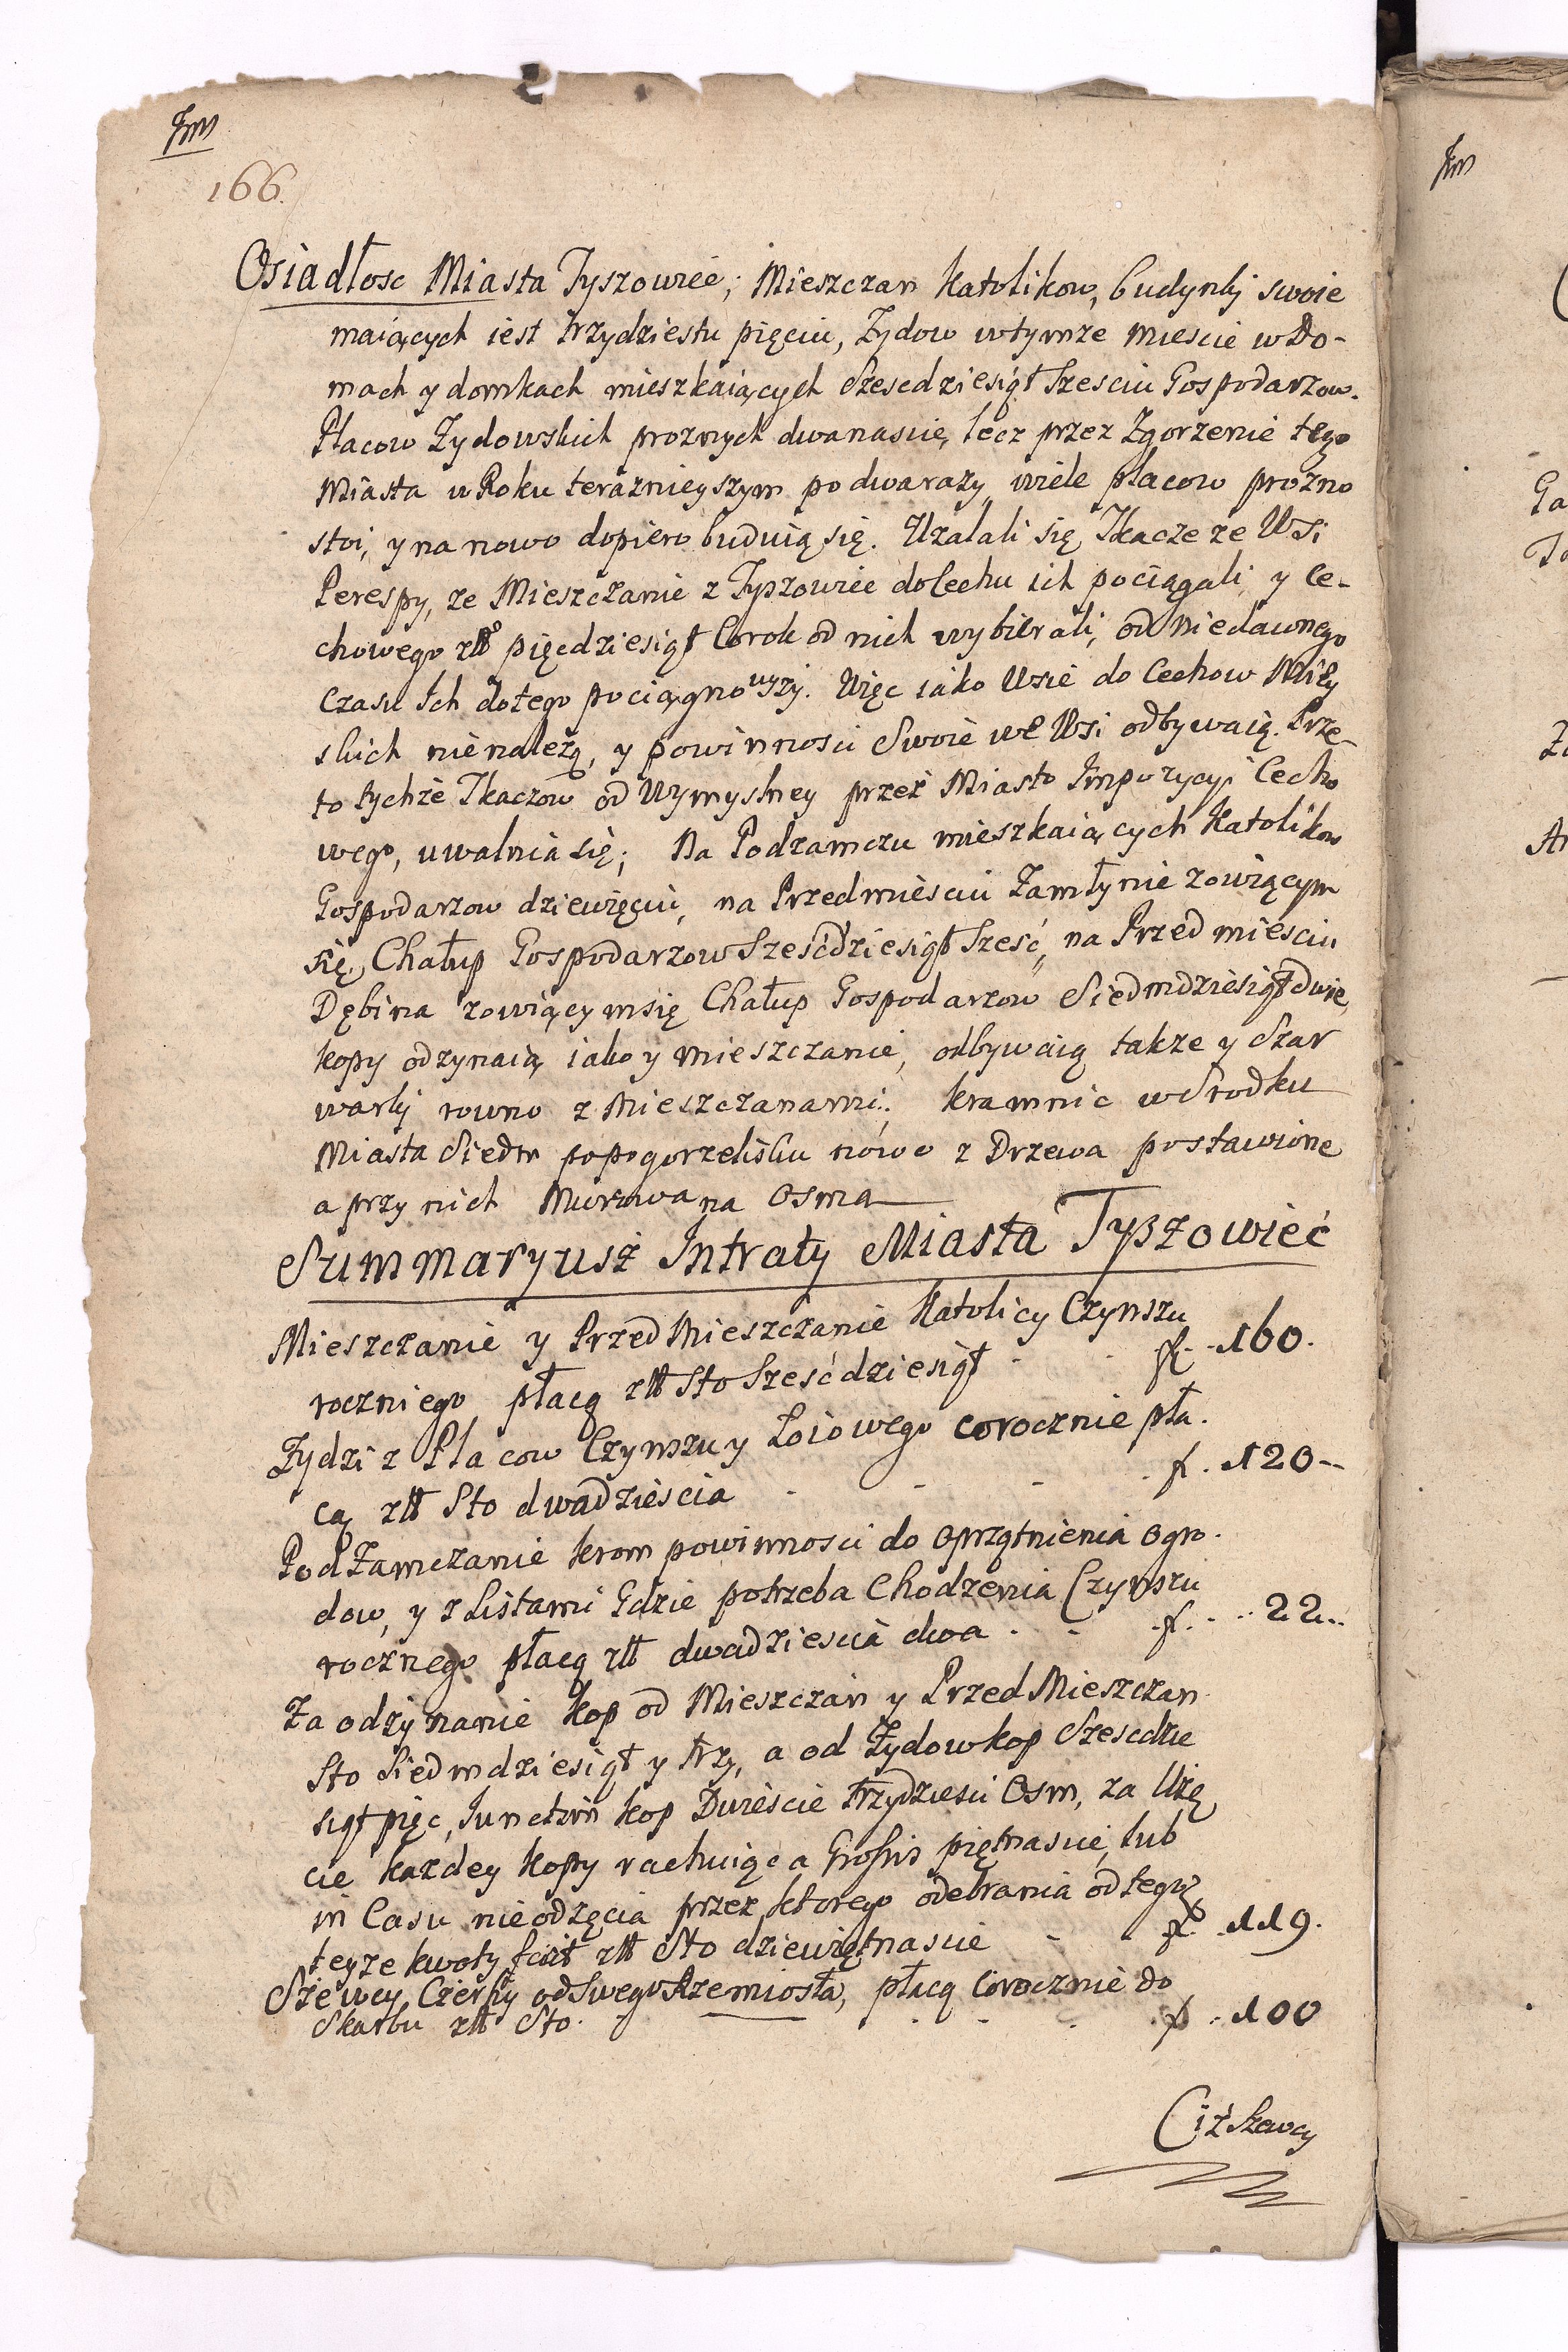 166.
Osiadłosc Miasta Tyszowiec; Mieszczan Katolikow, budynki swoie
maiących iest trzydziestu pięciu, Zydow wtymze miescie wDo-
mach y domkach mieszkaiących Szescdziesiąt Szesciu Gospodarzow.
Placow Zydowskich proznych dwanascie, lecz przez Zgorzenie tego
Miasta w Roku teraznieyszym po dwarazy wiele placow prozno
stoi, y na nowo dopiero buduią się. Uzalali się Tkacze ze Wsi
Perespy, ze Mieszczanie z Tyszowiec do Cechu ich pociągali, y Ce-
chowego złł pięcdziesiąt Corok od nich wybierali, od niedawnego
Czasu Ich do tego pociągnowszy. Więc iako Wsie do Cechow Miey
skich nie należą, y powinnosci Swoie we Wsi odbywaią. Prze
to tychże Tkaczow od Wymyslney przez Miasto Impozycyi Cecho
wego, uwalnia się; Na Podzamczu mieszkaiących Katolikow
Gospodarzow dziewięciu, na Przedmiesciu Zamłynie zowiącym
się, Chałup Gospodarzow Sześćdziesiąt Sześć, na Przedmiesciu
Dębina zowiącym się Chałup Gospodarzow Siedmdziesiąt dwie,
kopy odzynaią iako y mieszczanie, odbywaią takze y Szar
warki rowno z Mieszczanami. kramnic w Srodku
Miasta Siedm po pogorzelisku nowo z Drzewa postawione
a przy nich Murowana Osma
Summaryusz Intraty Miasta Tyszowiec
Mieszczanie y PrzedMieszczanie Katolicy Czynszu
roczniego płacą złł Sto Sześćdziesiąt f. 160.
Zydzi z Placow Czynszu y Łoiowego corocznie pła.
cą złł Sto dwadzieścia f. 120
PodZamczanie krom powinnosci do oprzątnienia ogro.
dow, y z Listami Gdzie potrzeba Chodzenia Czynszu
rocznego płacą złł dwadziescia dwa f. 22.
Za odżynanie kop od Mieszczan y PrzedMieszczan
Sto Siedmdziesiąt y trzy, a od Zydow kop Szescdzie
siąt pięc, Iunctim kop Dwieście trzydziesci Osm, za Użę
cie kazdey kopy rachuiąc a Grossis piętnascie, lub
in Casu nieodzęcia przez ktorego odebrania od tegoż
teyze kwoty facit złł Sto dziewiętnascie f. 119.
Szewcy, od Swego Rzemiosła, płacą corocznie do
Skarbu złł Sto f. 100
Ciż Szewcy